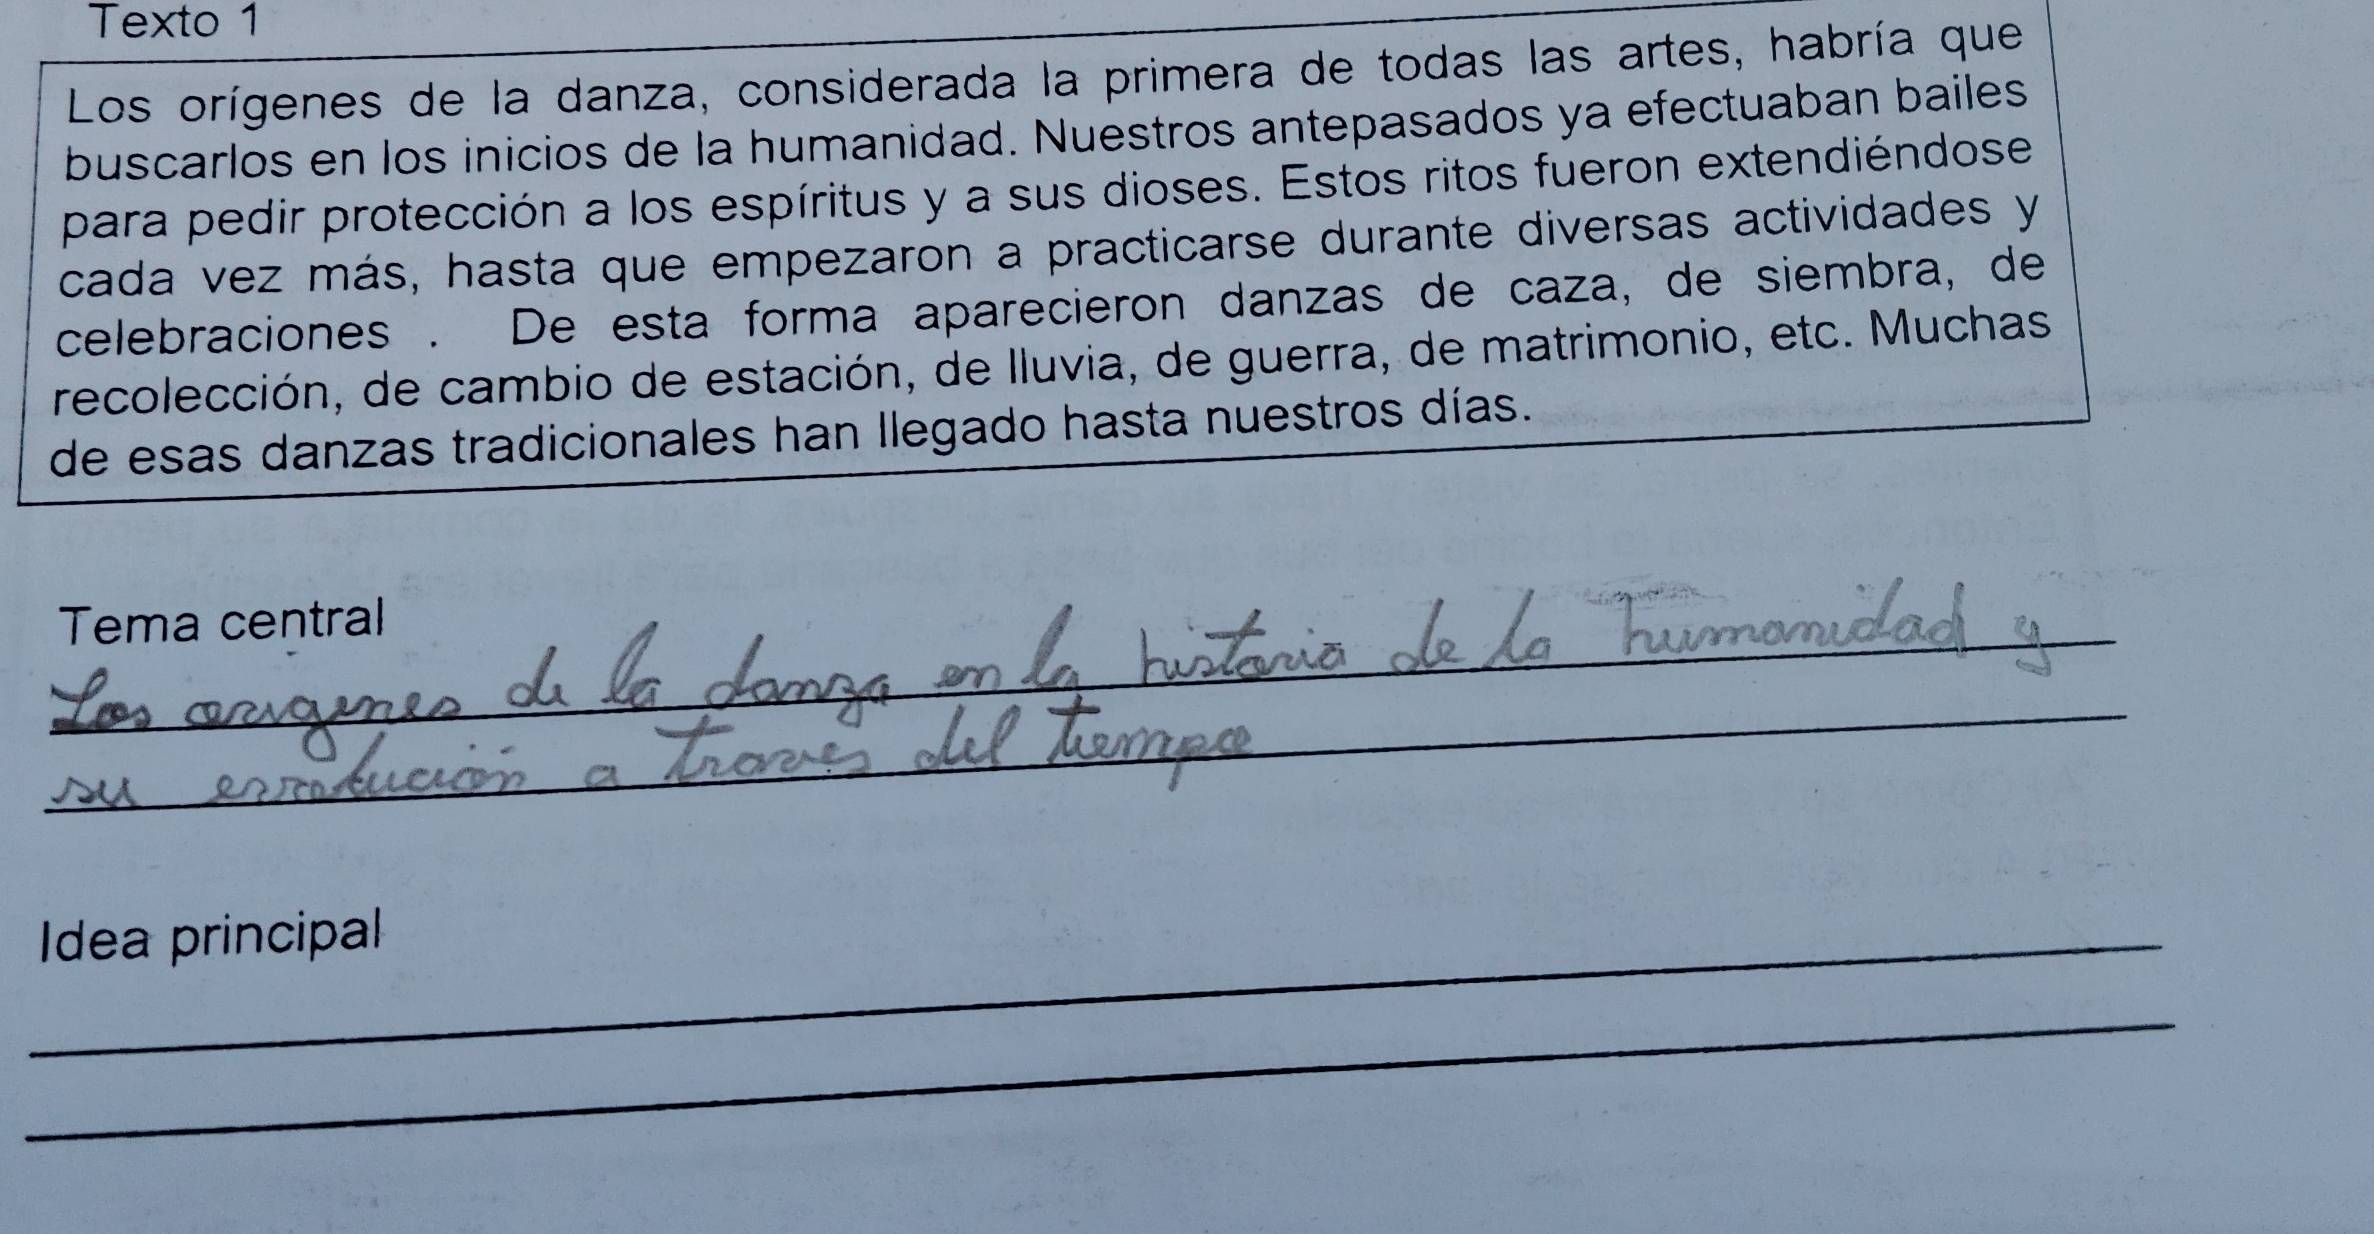 Texto 1
Los orígenes de la danza, considerada la primera de todas las artes, habría que
buscarlos en los inicios de la humanidad. Nuestros antepasados ya efectuaban bailes
para pedir protección a los espíritus y a sus dioses. Estos ritos fueron extendiéndose
cada vez más, hasta que empezaron a practicarse durante diversas actividades y
celebraciones . De esta forma aparecieron danzas de caza, de siembra, de
recolección, de cambio de estación, de lluvia, de guerra, de matrimonio, etc. Muchas
de esas danzas tradicionales han llegado hasta nuestros días.
Tema central
Los origenes de la danza en la historia de la humanidad y
su a traves del tiempo
Idea principal